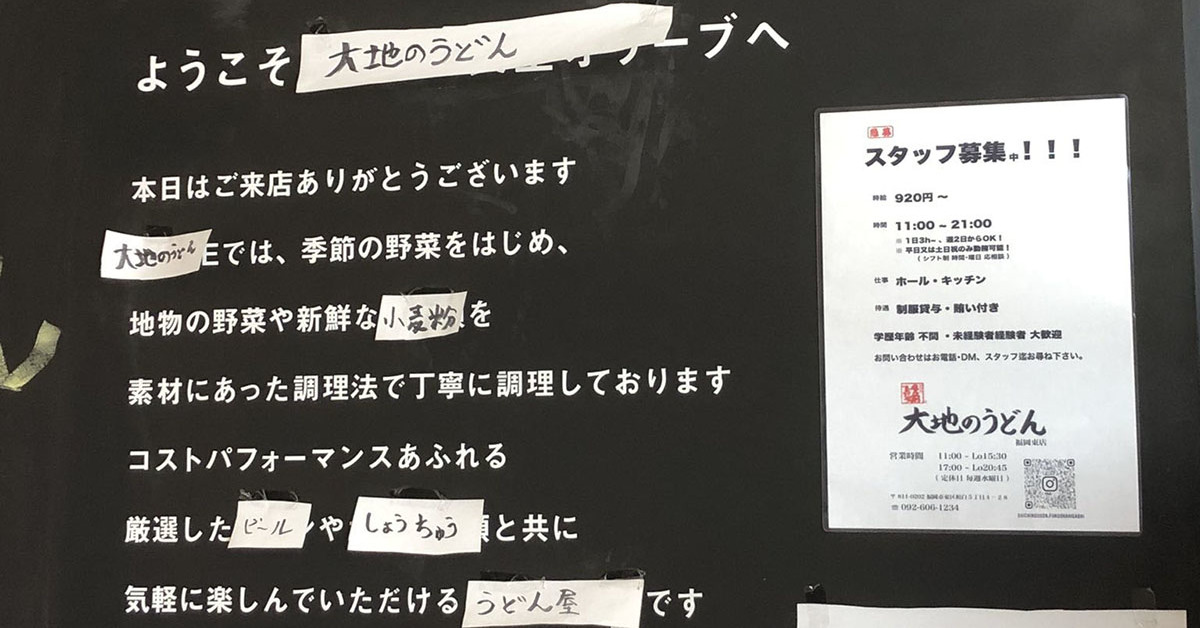 ようこそ 大地のうどん オリーブへ
本日はご来店ありがとうございます
大地のうどん Eでは、季節の野菜をはじめ、
地物の野菜や新鮮な小麦粉を
素材にあった調理法で丁寧に調理しております
コストパフォーマンスあふれる
厳選したビール ンや しょうちゅう 類と共に
気軽に楽しんでいただける うどん屋 です
急募
スタッフ募集中！！！
時給 920円 〜
時間 11:00 ~ 21:00
※ 1日3h~ 、週2日からOK！
※ 平日又は土日祝のみ勤務可能！
( シフト制 時間・曜日 応相談 )
仕事 ホール・キッチン
待遇 制服貸与・賄い付き
学歴年齢 不問 ・未経験者経験者 大歓迎
お問い合わせはお電話・DM、スタッフ迄お尋ね下さい。
大地のうどん
福岡東店
営業時間 11:00 ~ Lo15:30
17:00 ~ Lo20:45
( 定休日 毎週水曜日 )
〒811-0202 福岡市東区和白5丁目14－28
☎ 092-606-1234